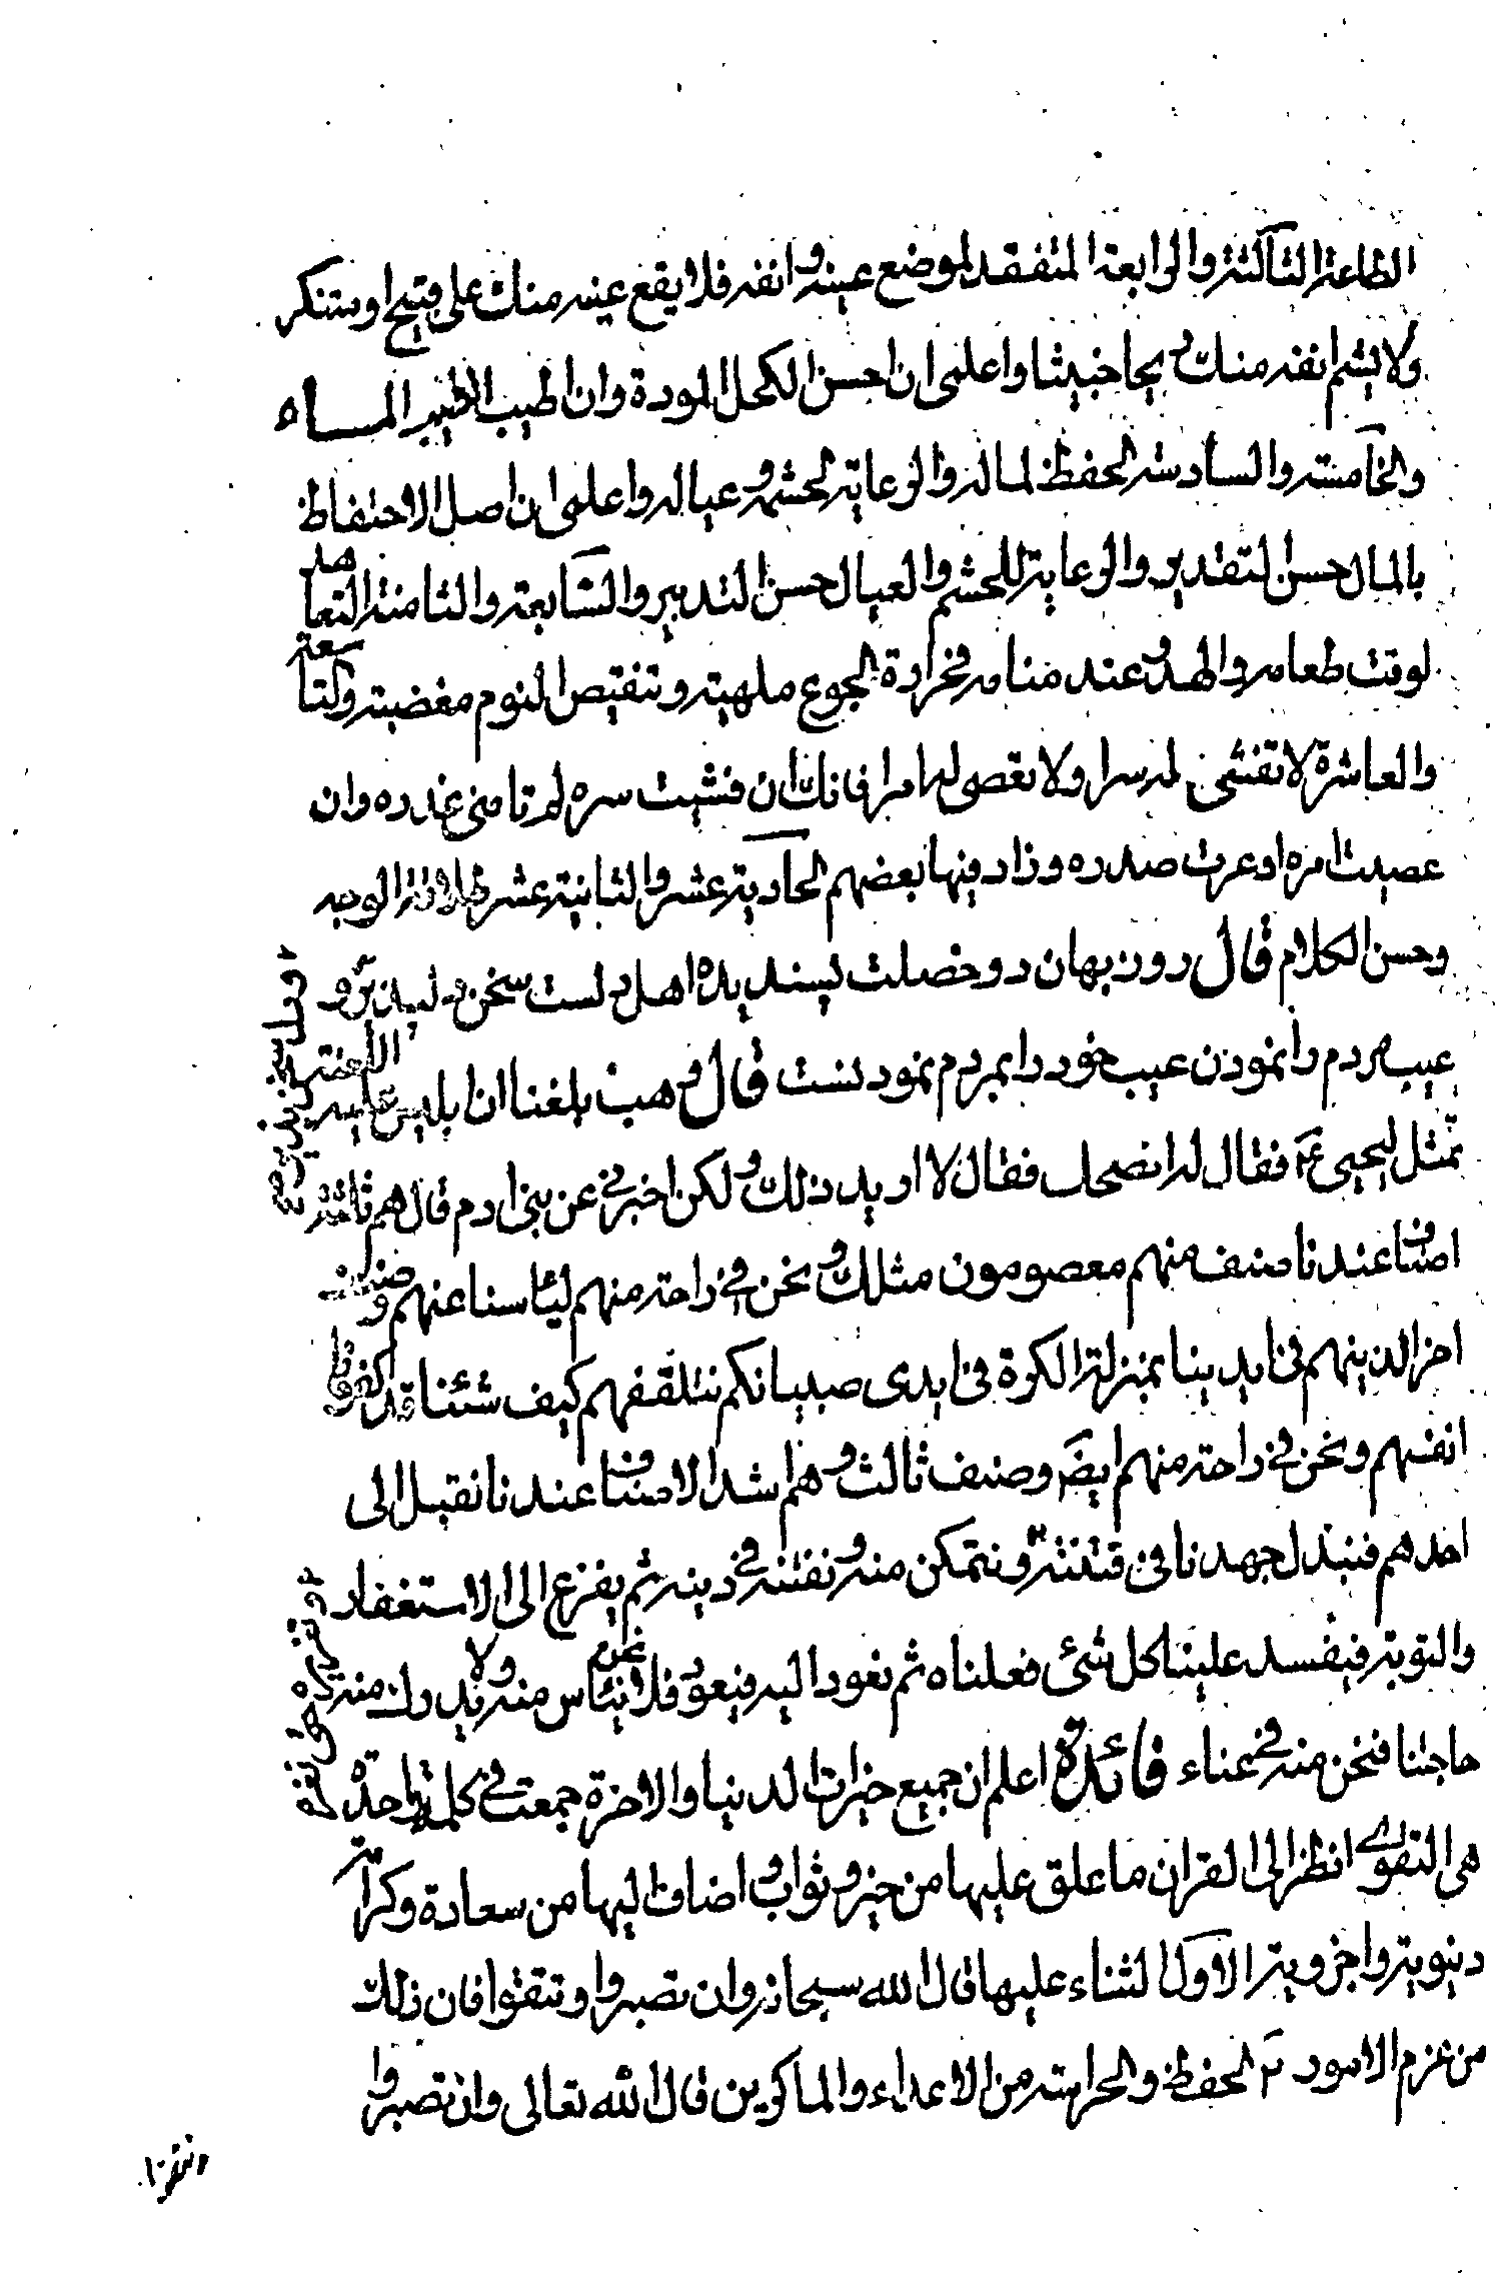 الطاعة الثالثة والرابعة المتفقد لموضع عينه وانفه فلا يقع عينه منك على قبيح او يتنكر
ولا يشم انفه منك ريحا خبيثا واعلمى ان احسن الكحل المودة وان اطيب الطيب الماء
والخامسة والسادسة الحفظ لماله والرعاية لحشمه وعياله واعلمى ان اصل الاحتفاظ
بالمال حسن التقدير والرعاية للحشم والعيال حسن التدبير والسابعة والثامنة التعاهد
لوقت طعامه والهدو عند منامه فحرارة الجوع ملهبة وتنقيص النوم مغضبة والتاسعة
والعاشرة لا تفشى له سرا ولا تعصى له امرا فانك ان فشيت سره لم تامنى غدره وان
عصيت امره اوغرت صدره وزاد فيها بعضهم الحادية عشر والثانية عشر طلاقة الوجه
وحسن الكلام قال روزبهان دو خصلت پسنديده اهل دلست سخن
عيب مردم را نمودن عيب خود را بمردم نمودنست قال وهب بلغنا ان ابليس عليه اللعنة
تمثل ليحيى ع فقال له انصحك فقال لا اريد ذلك ولكن اخبرنى عن بنى ادم قال هم ثلثة
اصناف عندنا صنف منهم معصومون مثلك ونحن فى راحة منهم ليأسنا عنهم وصنف
اخر الذينهم فى ايدينا بمنزلة الكرة فى ايدى صبيانكم نتلقفهم كيف شئنا قد كفونا
انفسهم ونحن فى راحة منهم ايضَ وصنف ثالث وهم اشد الاصناف عندنا نقبل الى
احدهم فنبذل جهدنا فى فتنته ونتمكن منه ونفتنه فى دينه ثم يفزع الى الاستغفار
والتوبة فيفسد علينا كل شئ فعلناه ثم نعود اليه فيعود فلا نحن نيئاس منه ولا ندرك منه
حاجتنا فنحن منه فى عناء فائدة اعلم ان جميع خيرات الدنيا والاخرة جمعت فى كلمة واحدة
هى التقوى انظر الى القران ما علق عليها من خير وثواب واضاف اليها من سعادة وكرامة
دنيوية واخروية الاول الثناء عليها قال الله سبحانه وان تصبروا وتتقوا فان ذلك
من عزم الامور ٢ الحفظ والحراسة من الاعداء والماكرين قال الله تعالى وان تصبروا
وتتقوا